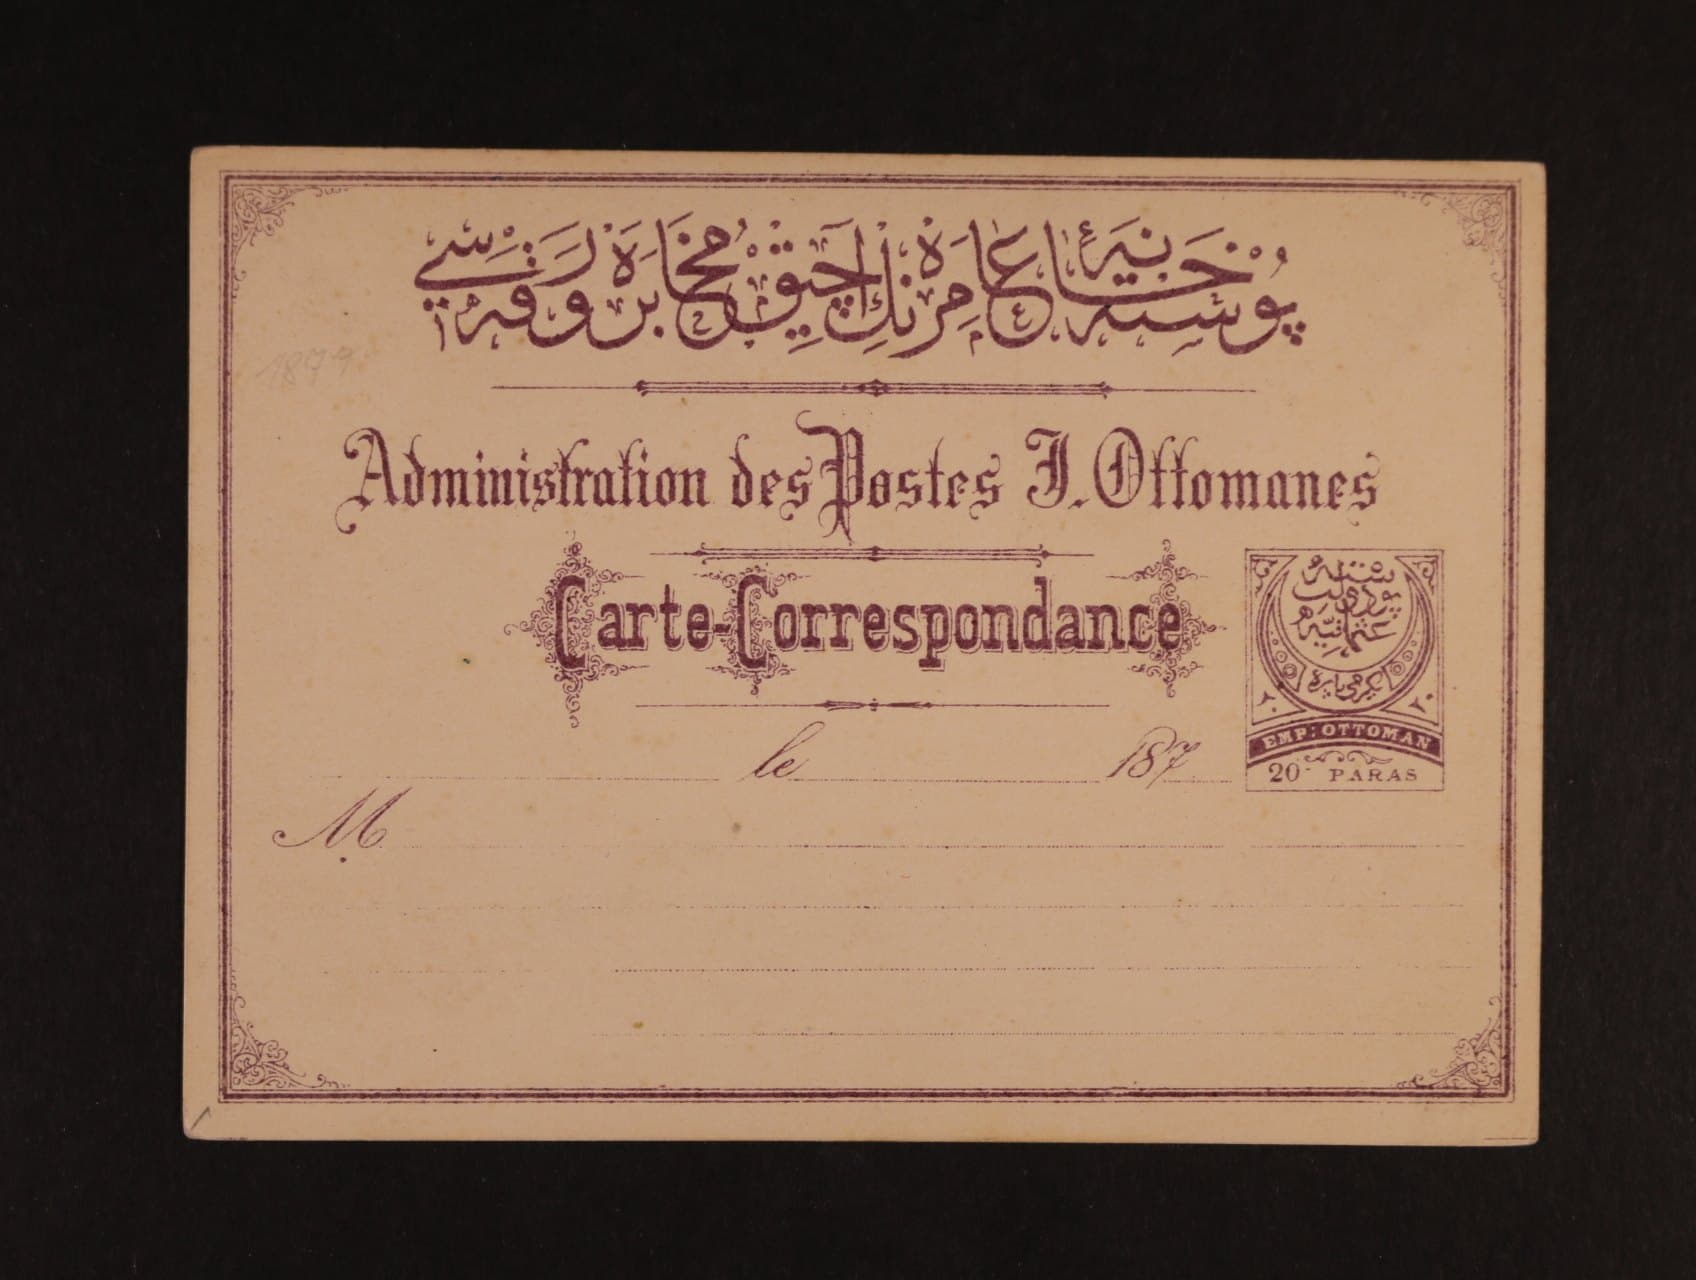 پوسته خانهٔ عامره‌نك آچیق مخابره ورقه‌سی
1879
Administration des Postes I. Ottomanes
Carte-Correspondance
پوسته
دولت
عثمانیه
یگرمی پاره
٢٠ ٢٠
EMP: OTTOMAN
20 PARAS
le 187
M